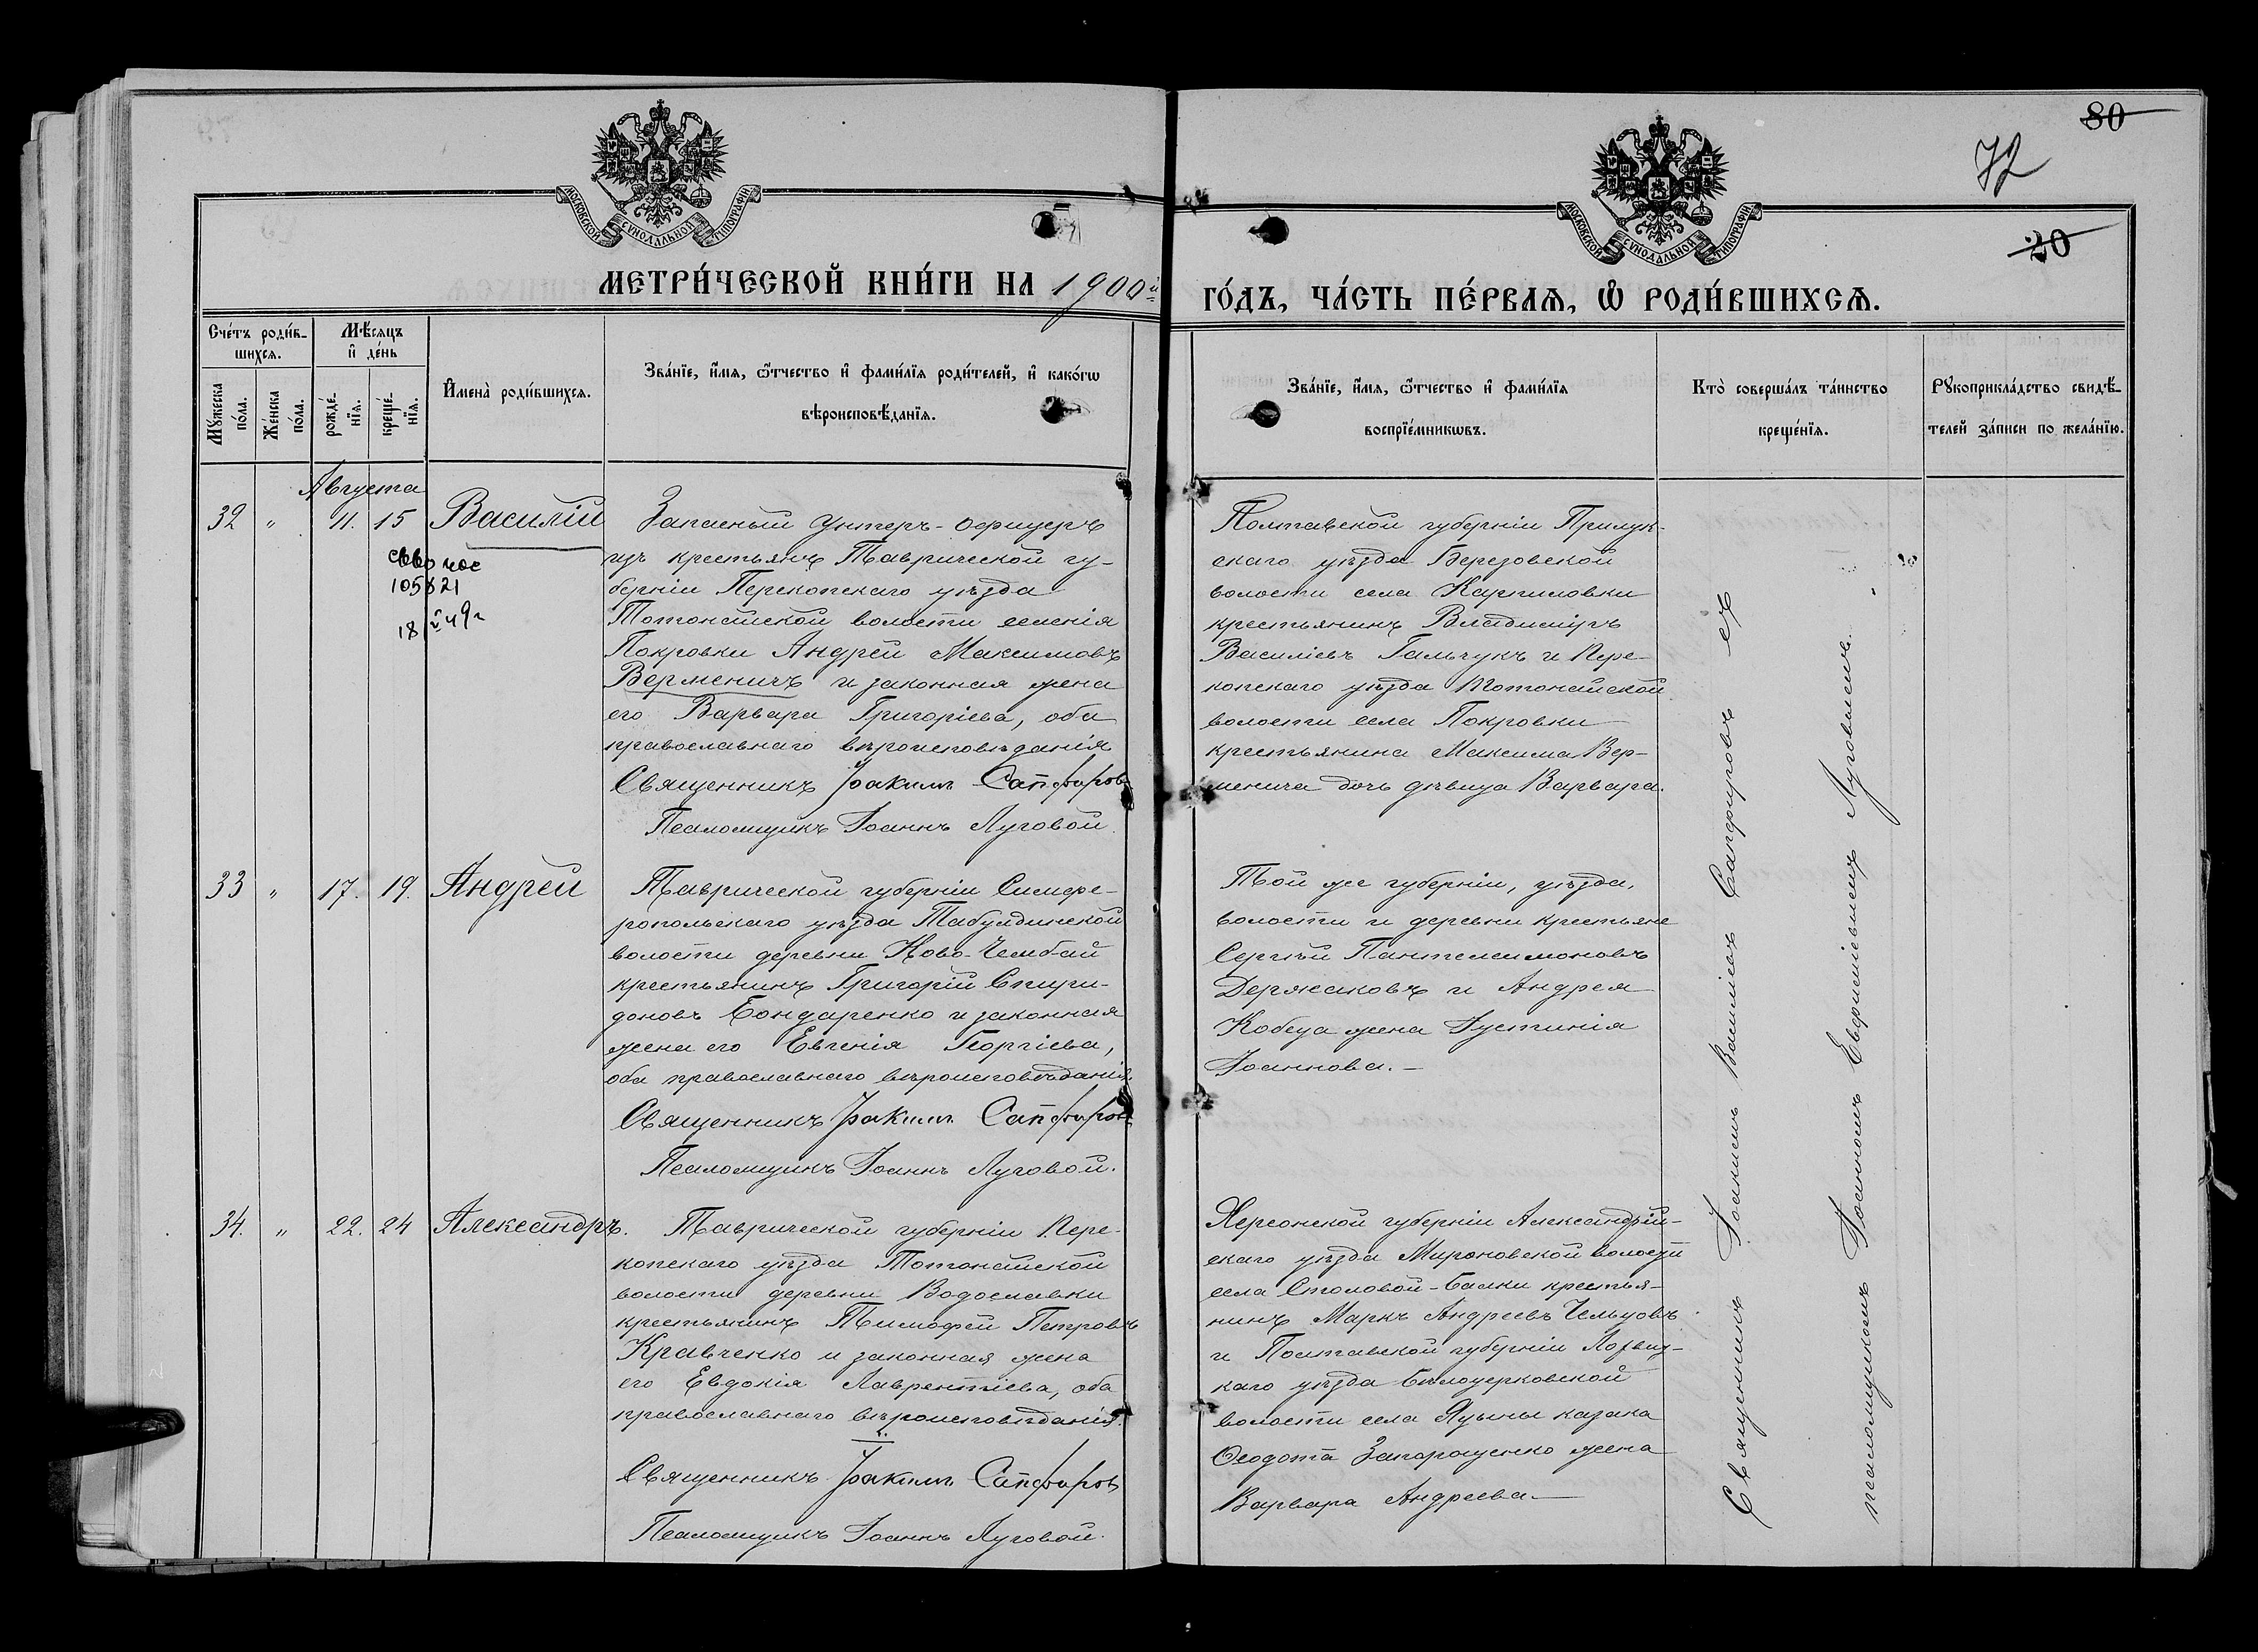 80
72
20
МОСКОВСКОЙ СУНОДАЛЬНОЙ ТИПОГРАФІИ
МОСКОВСКОЙ СУНОДАЛЬНОЙ ТИПОГРАФІИ
МЕТРИ́ЧЕСКОЙ КНИ́ГИ НА 1900й
ГО́ДЪ, ЧА́СТЬ ПЕ́РВАѦ, Ѡ҆ РОДИ́ВШИХСѦ.
Сче́тъ роди́в-
шихсѧ.
Мѣ́сѧцъ
и҆ де́нь
Мꙋ́жеска
по́ла.
Же́нска
по́ла.
рожде́-
нїѧ.
креще́-
нїѧ.
И҆мена̀ роди́вшихсѧ.
Зва́нїе, и҆́мѧ, ѻ҆́тчество и҆ фами́лїѧ роди́телей, и҆ како́гѡ
вѣроисповѣ́данїѧ.
Зва́нїе, и҆́мѧ, ѻ҆́тчество и҆ фами́лїѧ
воспрїе́мникѡвъ.
Кто̀ соверша́лъ та́инство
креще́нїѧ.
Рꙋкоприкла́дство свидѣ́-
телей за́писи по жела́нїю.
Августа
32 " 11. 15 Василій
18
49г
Запасный унтеръ-офицеръ
изъ крестьянъ Таврической гу-
берніи Перекопскаго уѣзда
Тотонайской волости селенія
Покровки Андрей Максимовъ
Верменичъ и законная жена
его Варвара Григоріева, оба
православнаго вѣроисповѣданія
Священникъ Іоакимъ Сапфировъ
Псаломщикъ Іоаннъ Луговой.
Полтавской губерніи Прилук-
скаго уѣзда Березовской
волости села Карпиловки
крестьянинъ Владиміръ
Василіевъ Гальчукъ и Пере-
копскаго уѣзда Тотонайской
волости села Покровки
крестьянина Максима Вер-
менича дочь дѣвица Варвара.
33 " 17. 19. Андрей
Таврической губерніи Симфе-
ропольскаго уѣзда Табулдинской
волости деревни Ново-Чембай
крестьянинъ Григорій Спири-
доновъ Бондаренко и законная
жена его Евгенія Георгіева,
оба православнаго вѣроисповѣданія.
Священникъ Іоакимъ Сапфировъ
Псаломщикъ Іоаннъ Луговой.
Той же губерніи, уѣзда,
волости и деревни крестьяне
Сергѣй Пантелеимоновъ
Держаковъ и Андрея
Кобеца жена Іустинія
Іоаннова. —
34. " 22. 24 Александръ.
Таврической губерніи Пере-
копскаго уѣзда Тотонайской
волости деревни Водославки
крестьянинъ Тимофей Петровъ
Кравченко и законная жена
его Евдокія Лаврентіева, оба
православнаго вѣроисповѣданія.
Священникъ Іоакимъ Сапфировъ
Псаломщикъ Іоаннъ Луговой.
Херсонской губерніи Александрій-
скаго уѣзда Мироновской волости
села Столовой-Балки крестья-
нинъ Маркъ Андреевъ Чельцовъ
и Полтавской губерніи Лохвиц-
каго уѣзда Бѣлоцерковской
волости села Яцыны казака
Ѳеодота Запорощенко жена
Варвара Андреева —
Священникъ Іоакимъ Василіевъ Сапфировъ съ
псаломщикомъ Іоанномъ Евфиміевичемъ Луговымъ.